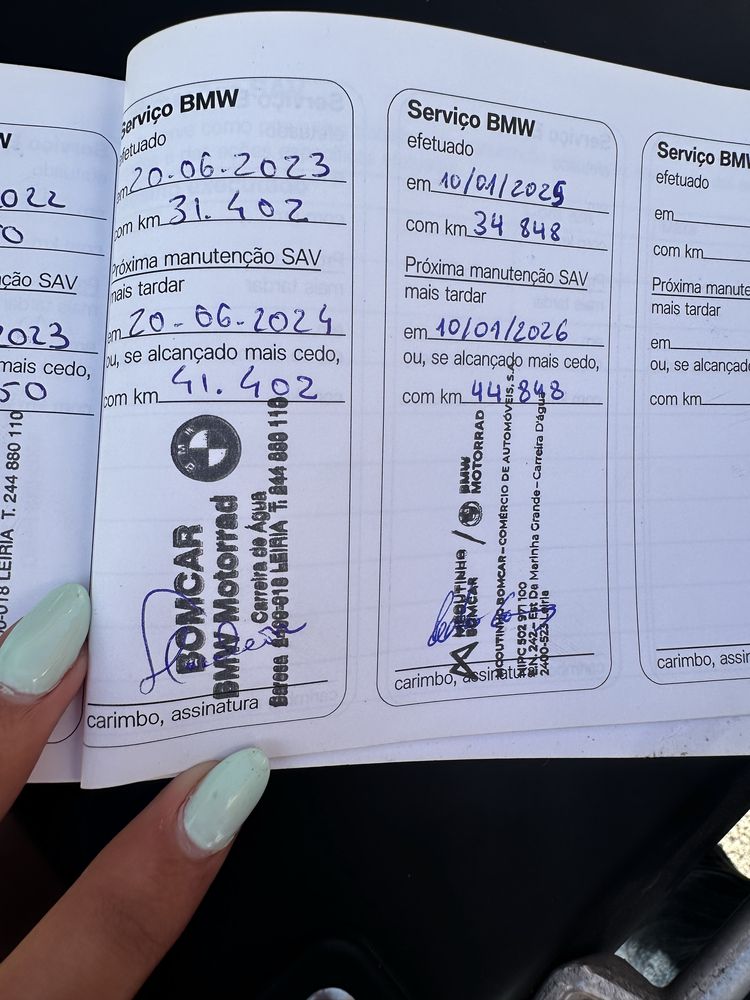 022
0
ção SAV
2023
mais cedo,
50
0-018 LEIRIA T. 244 880 110
Serviço BMW
efetuado
em 20-06-2023
com km 31.402
Próxima manutenção SAV
mais tardar
em 20-06-2024
ou, se alcançado mais cedo,
com km 41.402
BMW
BOMCAR
BMW Motorrad
Carreira de Água
2400-018 LEIRIA T. 244 880 110
carimbo, assinatura
Serviço BMW
efetuado
em 10/01/2025
com km 34 848
Próxima manutenção SAV
mais tardar
em 10/01/2026
ou, se alcançado mais cedo,
com km 44 848
MCOUTINHO
BOMCAR
BMW
MOTORRAD
MCOUTINHO BOMCAR - COMÉRCIO DE AUTOMÓVEIS, S.A.
NIPC 502 971 100
E.N. 242 - Est. Da Marinha Grande - Carreira D'água
2400-523 Leiria
carimbo, assinatura
Serviço BMW
efetuado
em
com km
Próxima manute
mais tardar
em
ou, se alcançado
com km
carimbo, assin